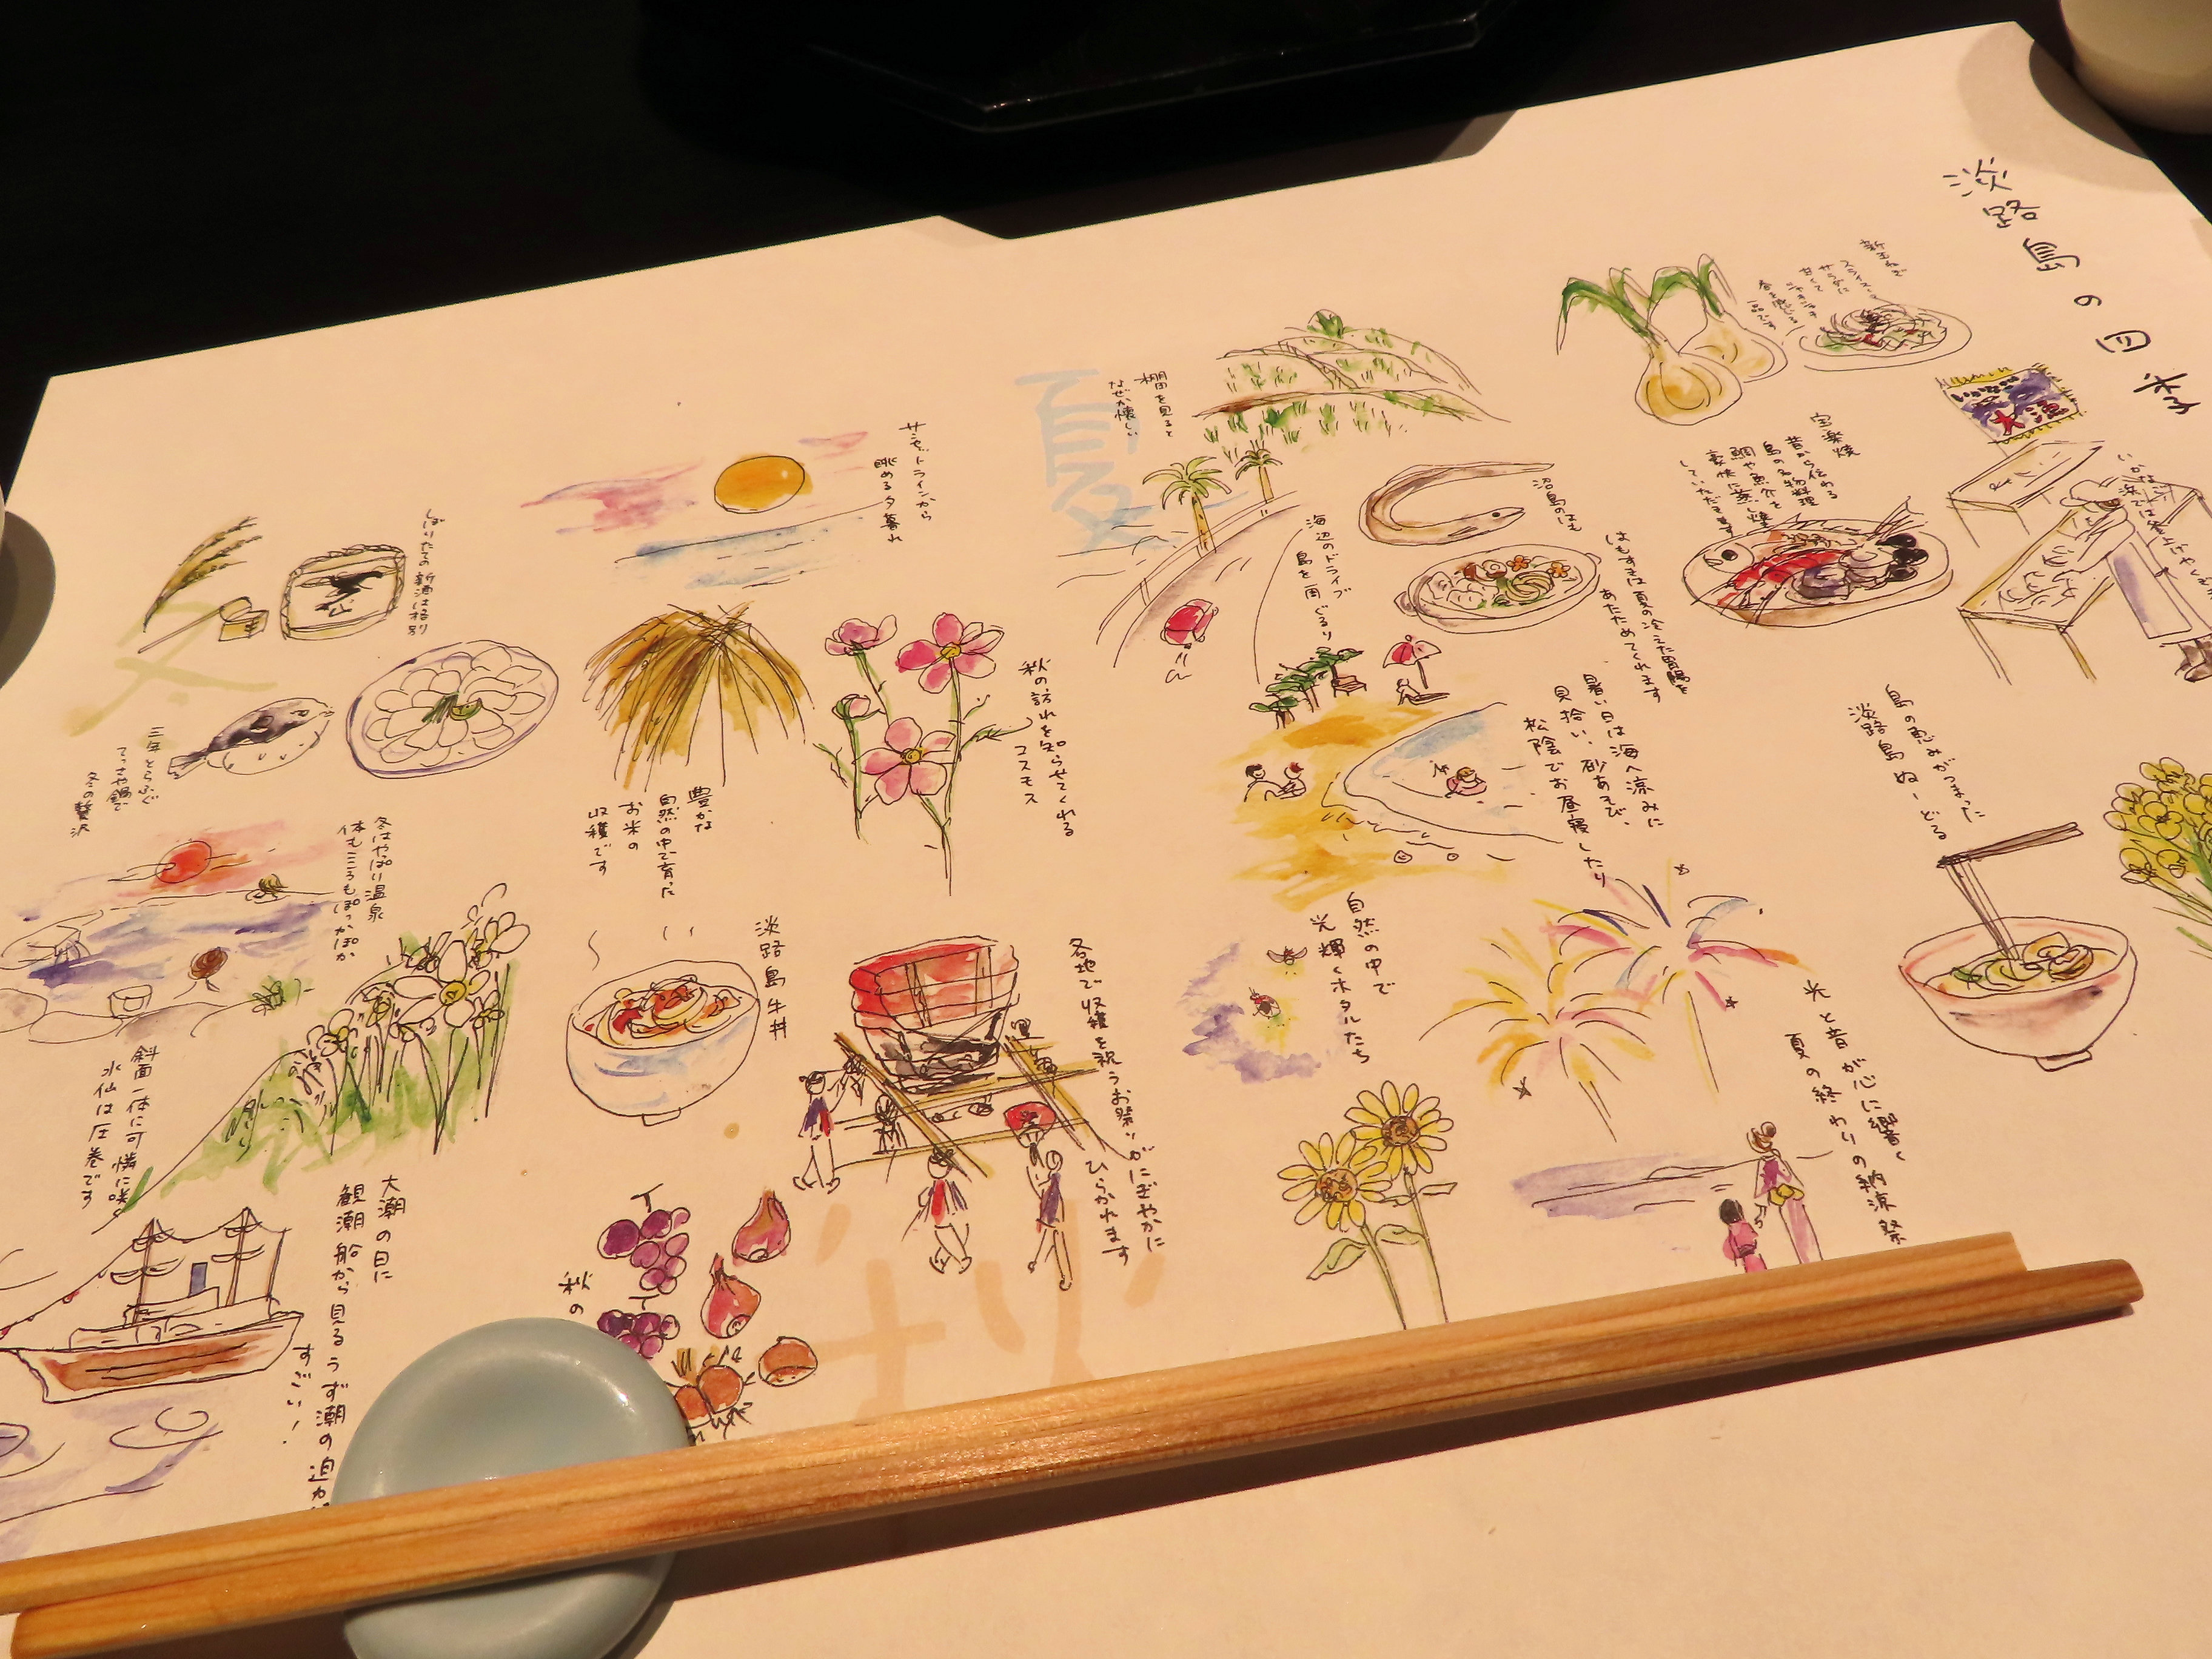 淡路島の四季
新玉ねぎ
スライスして
サラダに
甘くて
シャキシャキ
春を感じる
一品です
大漁
いかなご
浜では
宝楽焼
昔から伝わる
島の名物料理
鯛や魚介を
豪快に蒸し焼
していただきます
島の恵みがつまった
淡路島ぬーどる
夏
棚田を見ると
なぜか懐しい
沼島のはも
はもすきは夏の冷えた胃腸を
あたためてくれます
海辺のドライブ
島を一周ぐるり
暑い日は海へ涼みに
貝拾い、砂あそび、
松陰でお昼寝したり
自然の中で
光輝くホタルたち
光と音が心に響く
夏の終わりの納涼祭
秋
サンセットラインから
眺める夕暮れ
秋の訪れを知らせてくれる
コスモス
豊かな
自然の中で育った
お米の
収穫です
各地で収穫を祝うお祭りがにぎやかに
ひらかれます
淡路島牛丼
秋の
冬
しぼりたての新酒は格別
三年とらふぐ
てっさや鍋で
冬の贅沢
冬はやっぱり温泉
体もこころもぽっかぽか
斜面一体に可憐に咲く
水仙は圧巻です
大潮の日に
観潮船から見るうず潮の迫力
すごい!